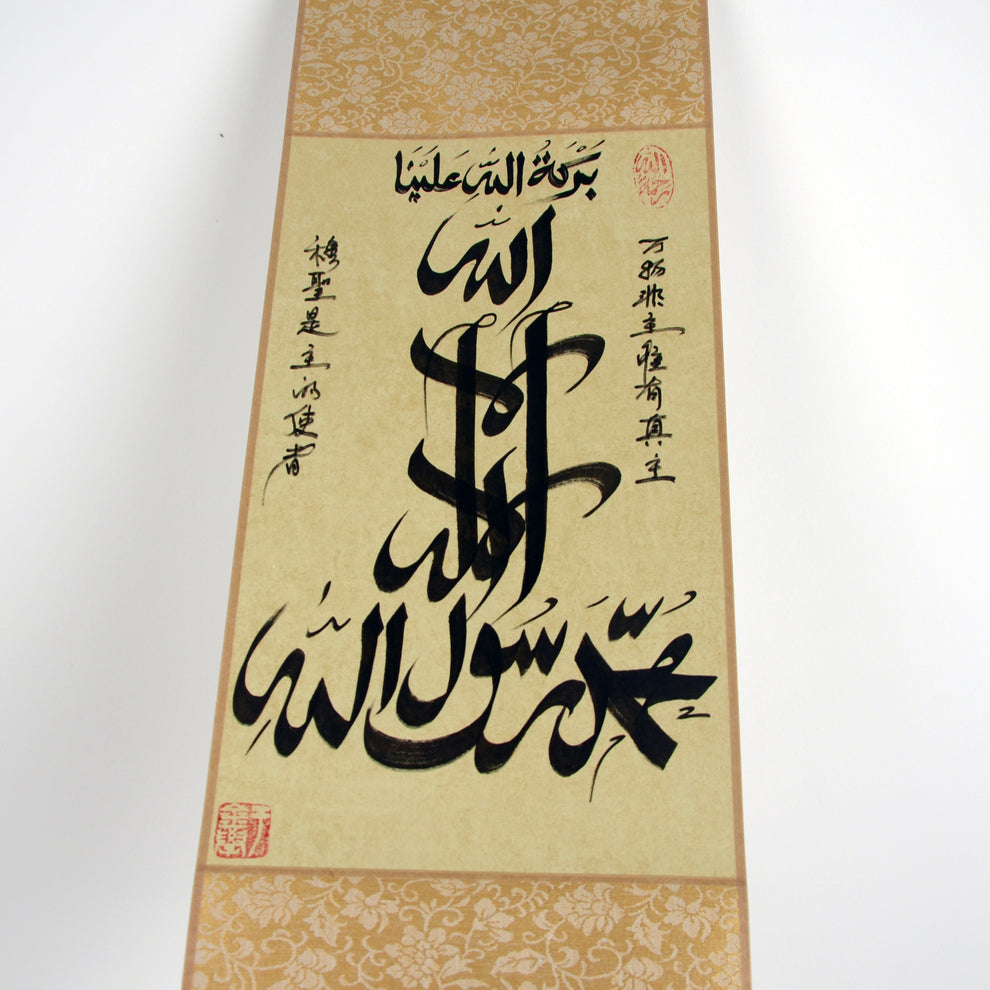 بَرَكَةُ اللهِ عَلَيْنَا
لا اله الا الله
مُحَمَّد رَسُولُ اللهِ
万物非主唯有真主
穆聖是主的使者